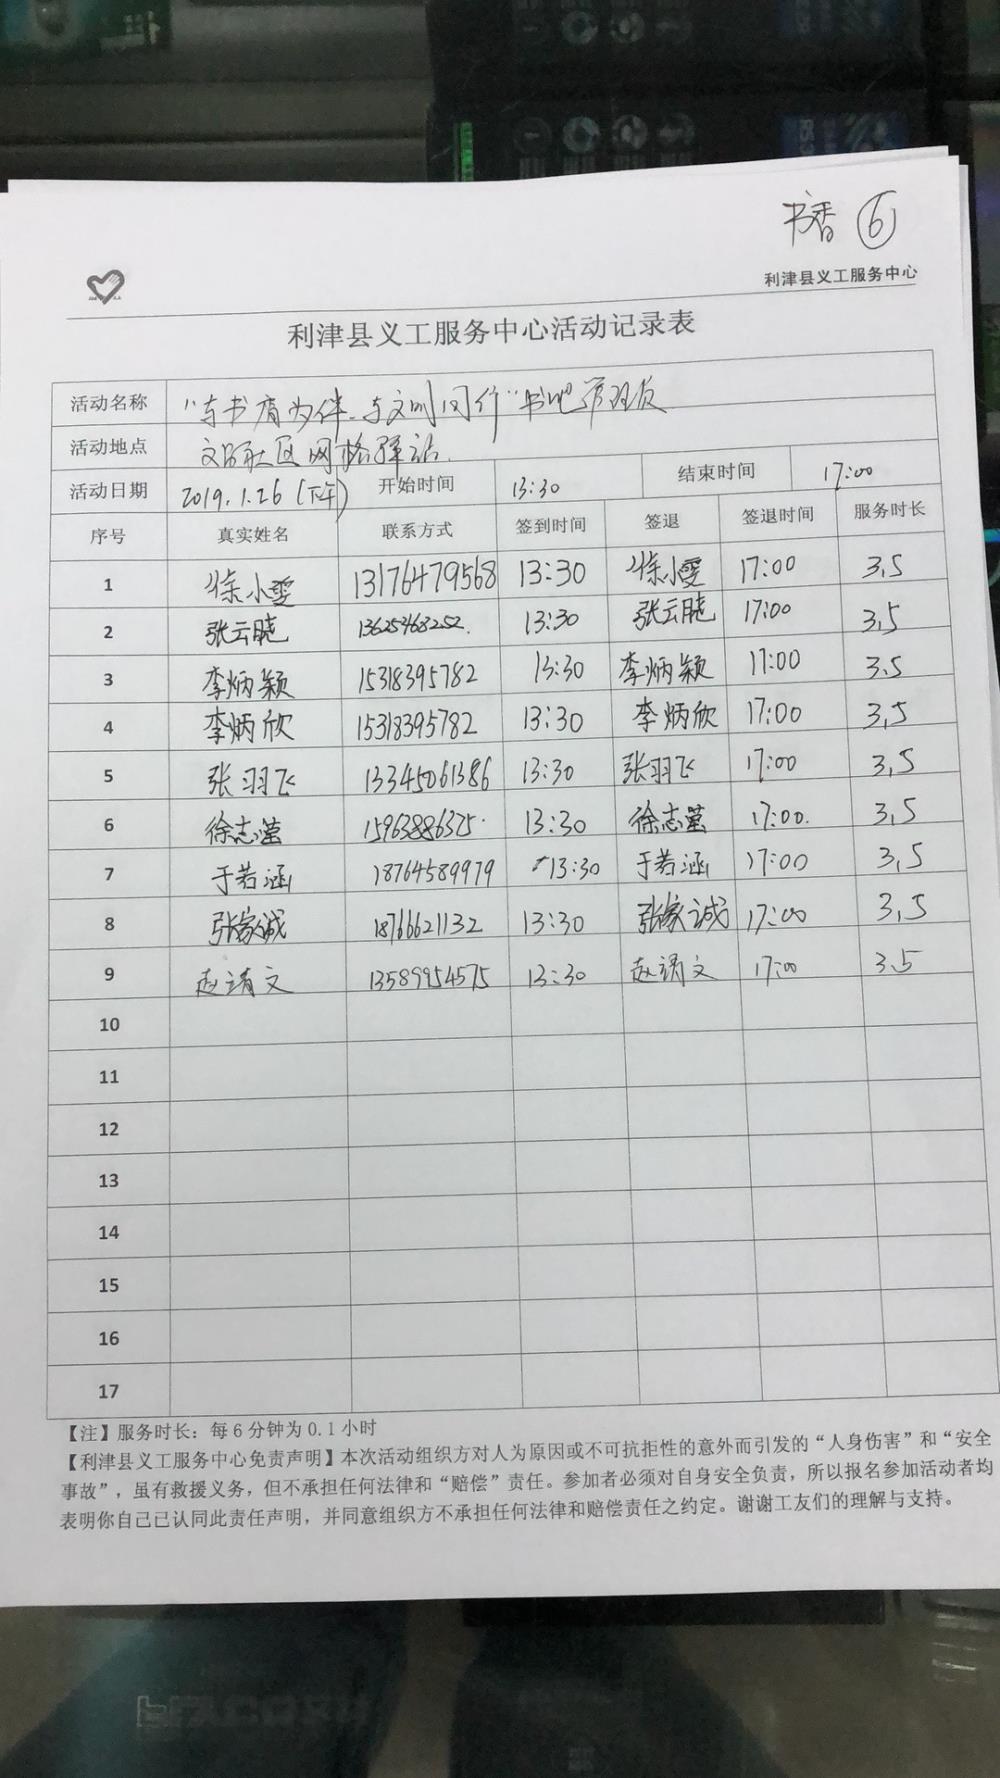 书香 ⑥
利津县义工服务中心
利津县义工服务中心活动记录表
活动名称 "与书香为伴 与文明同行"书吧管理员
活动地点 文昭社区网格驿站
活动日期 2019.1.26(下午) 开始时间 13:30 结束时间 17:00
序号 真实姓名 联系方式 签到时间 签退 签退时间 服务时长
1 徐小雯 13176479568 13:30 徐小雯 17:00 3.5
2 张云睫 13625463252 13:30 张云睫 17:00 3.5
3 李炳颖 15318395782 13:30 李炳颖 17:00 3.5
4 李炳欣 15318395782 13:30 李炳欣 17:00 3.5
5 张羽飞 13345061386 13:30 张羽飞 17:00 3.5
6 徐志滢 15963886375 13:30 徐志滢 17:00 3.5
7 于若涵 18764589979 13:30 于若涵 17:00 3.5
8 张家诚 18766621132 13:30 张家诚 17:00 3.5
9 赵靖文 13589954575 13:30 赵靖文 17:00 3.5
10
11
12
13
14
15
16
17
【注】服务时长：每6分钟为0.1小时
【利津县义工服务中心免责声明】本次活动组织方对人为原因或不可抗拒性的意外而引发的“人身伤害”和“安全
事故”，虽有救援义务，但不承担任何法律和“赔偿”责任。参加者必须对自身安全负责，所以报名参加活动者均
表明你自己已认同此责任声明，并同意组织方不承担任何法律和赔偿责任之约定。谢谢工友们的理解与支持。